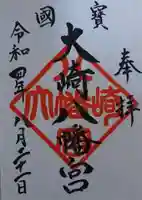 奉拝
國寶
大崎八幡宮
令和四年八月二十一日